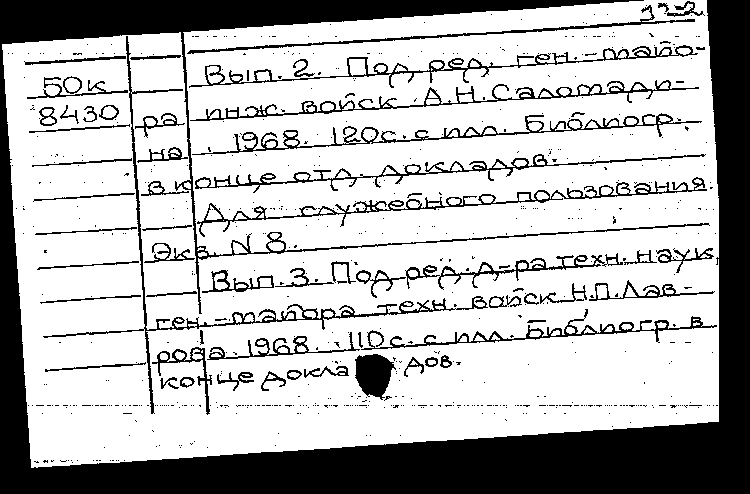 50к
8430
Вып. 2. Под ред. ген.-майо-
ра инж. войск А.Н. Саломади-
на. 1968. 120с. с илл. Библиогр.
в конце отд. докладов.
Для служебного пользования.
Экз. N 8.
Вып. 3. Под ред. д-ра техн. наук,
ген.-майора техн. войск Н.П. Лав-
рова. 1968. 110с. с илл. Библиогр. в
конце докладов.